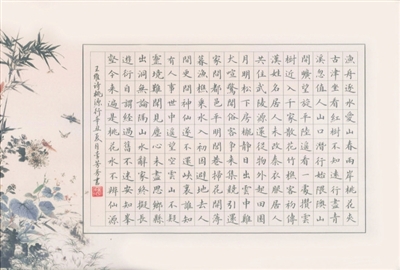 漁舟逐水愛山春兩岸桃花夾
古津坐看紅樹不知遠行盡青
溪忽值人山口潛行始隈隩山
開曠望旋平陸遙看一處攢雲
樹近入千家散花竹樵客初傳
漢姓名居人未改秦衣服居人
共住武陵源還從物外起田園
月明松下房櫳靜日出雲中雞
犬喧驚聞俗客爭來集競引還
家問都邑平明閭巷掃花開薄
暮漁樵乘水入初因避地去人
間更問神仙遂不還峽裏誰知
有人事世中遙望空雲山不疑
靈境難聞見塵心未盡思鄉縣
出洞無論隔山水辭家終擬長
遊行自謂經過舊不迷安知峯
壑今來遍是桃花水不辨仙源
王維詩桃源行辛丑夏月書